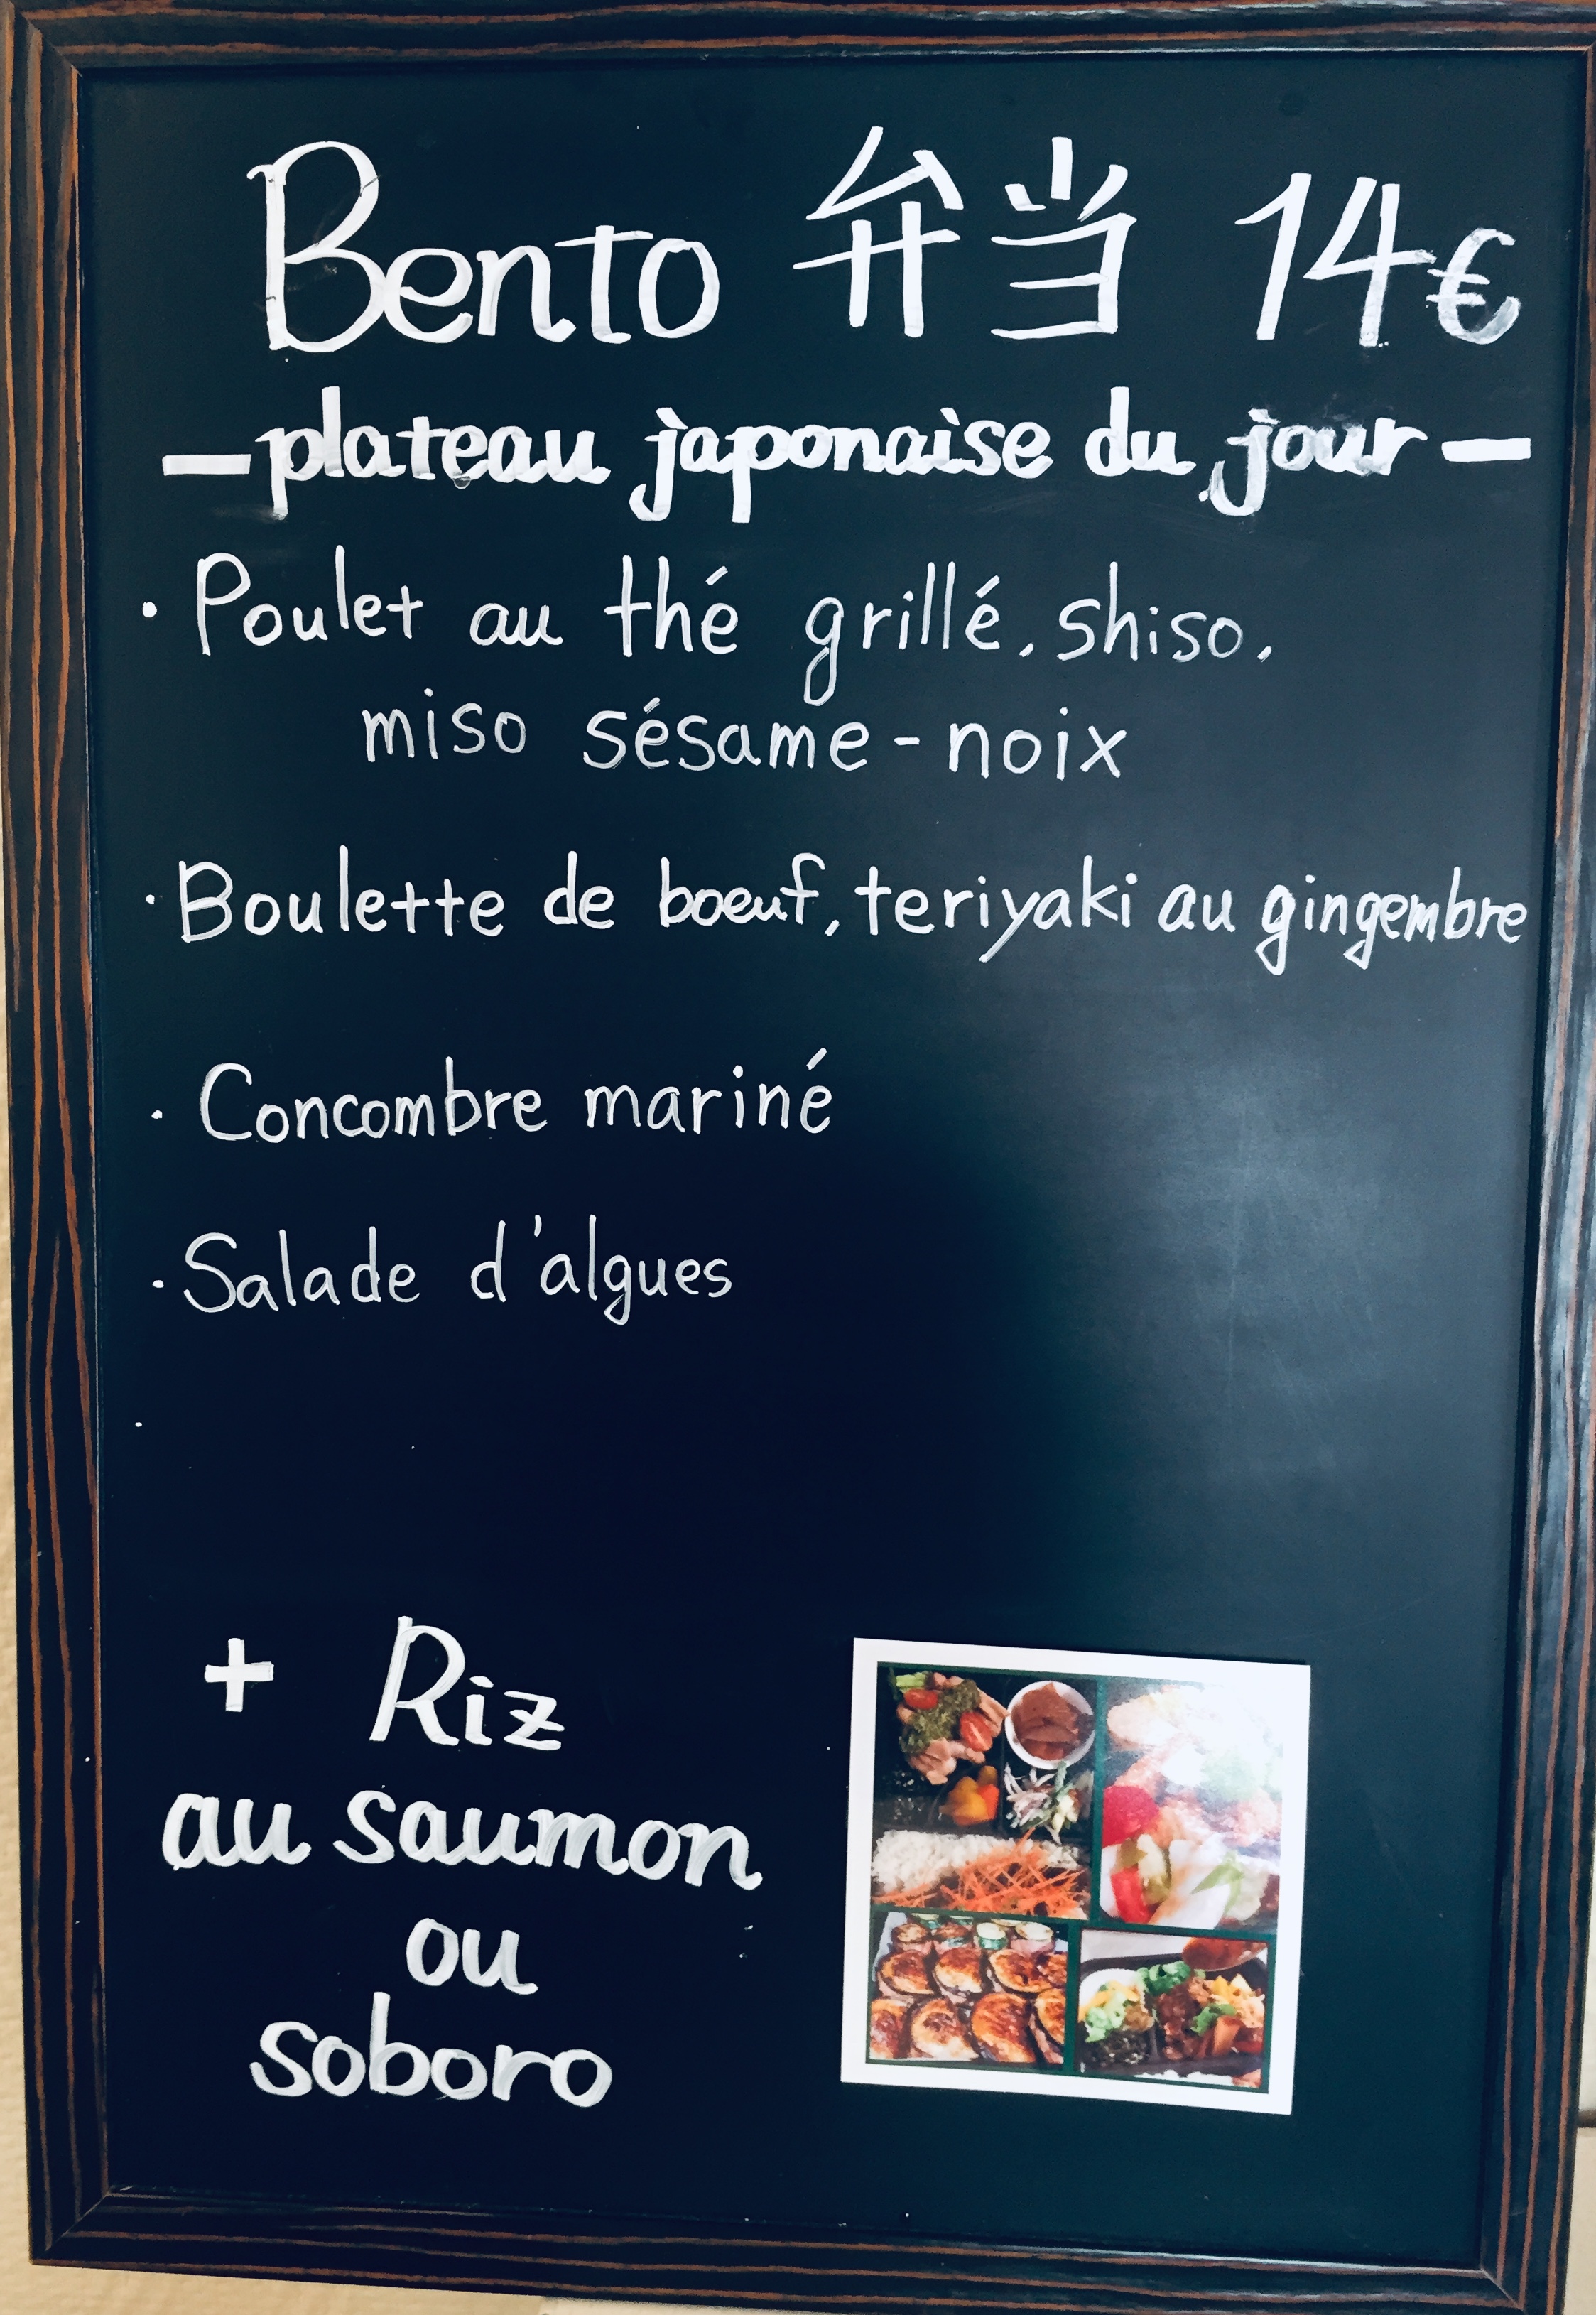 Bento 弁当 14€
— plateau japonaise du jour —
· Poulet au thé grillé, shiso,
miso sésame-noix
· Boulette de bœuf, teriyaki au gingembre
· Concombre mariné
· Salade d'algues
+ Riz
au saumon
ou
soboro